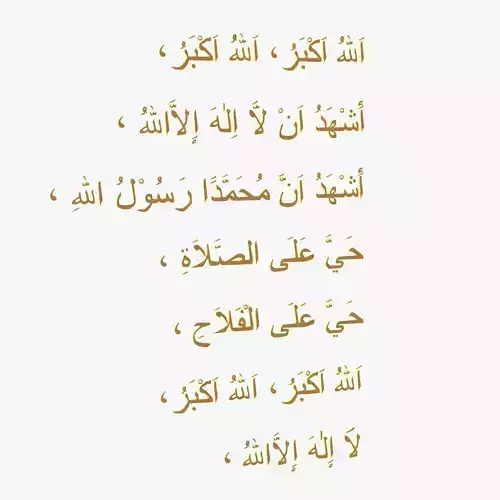 اَللهُ اَكْبَرُ ، اَللهُ اَكْبَرُ ،
أَشْهَدُ اَنْ لَّا اِلٰهَ إِلاَّاللهُ ،
أَشْهَدُ اَنَّ مُحَمَّدًا رَسُوْلُ اللهِ ،
حَيَّ عَلَى الصَّلاَةِ ،
حَيَّ عَلَى الْفَلاَحِ ،
اَللهُ اَكْبَرُ ، اَللهُ اَكْبَرُ ،
لاَ إِلٰهَ إِلاَّاللهُ ،